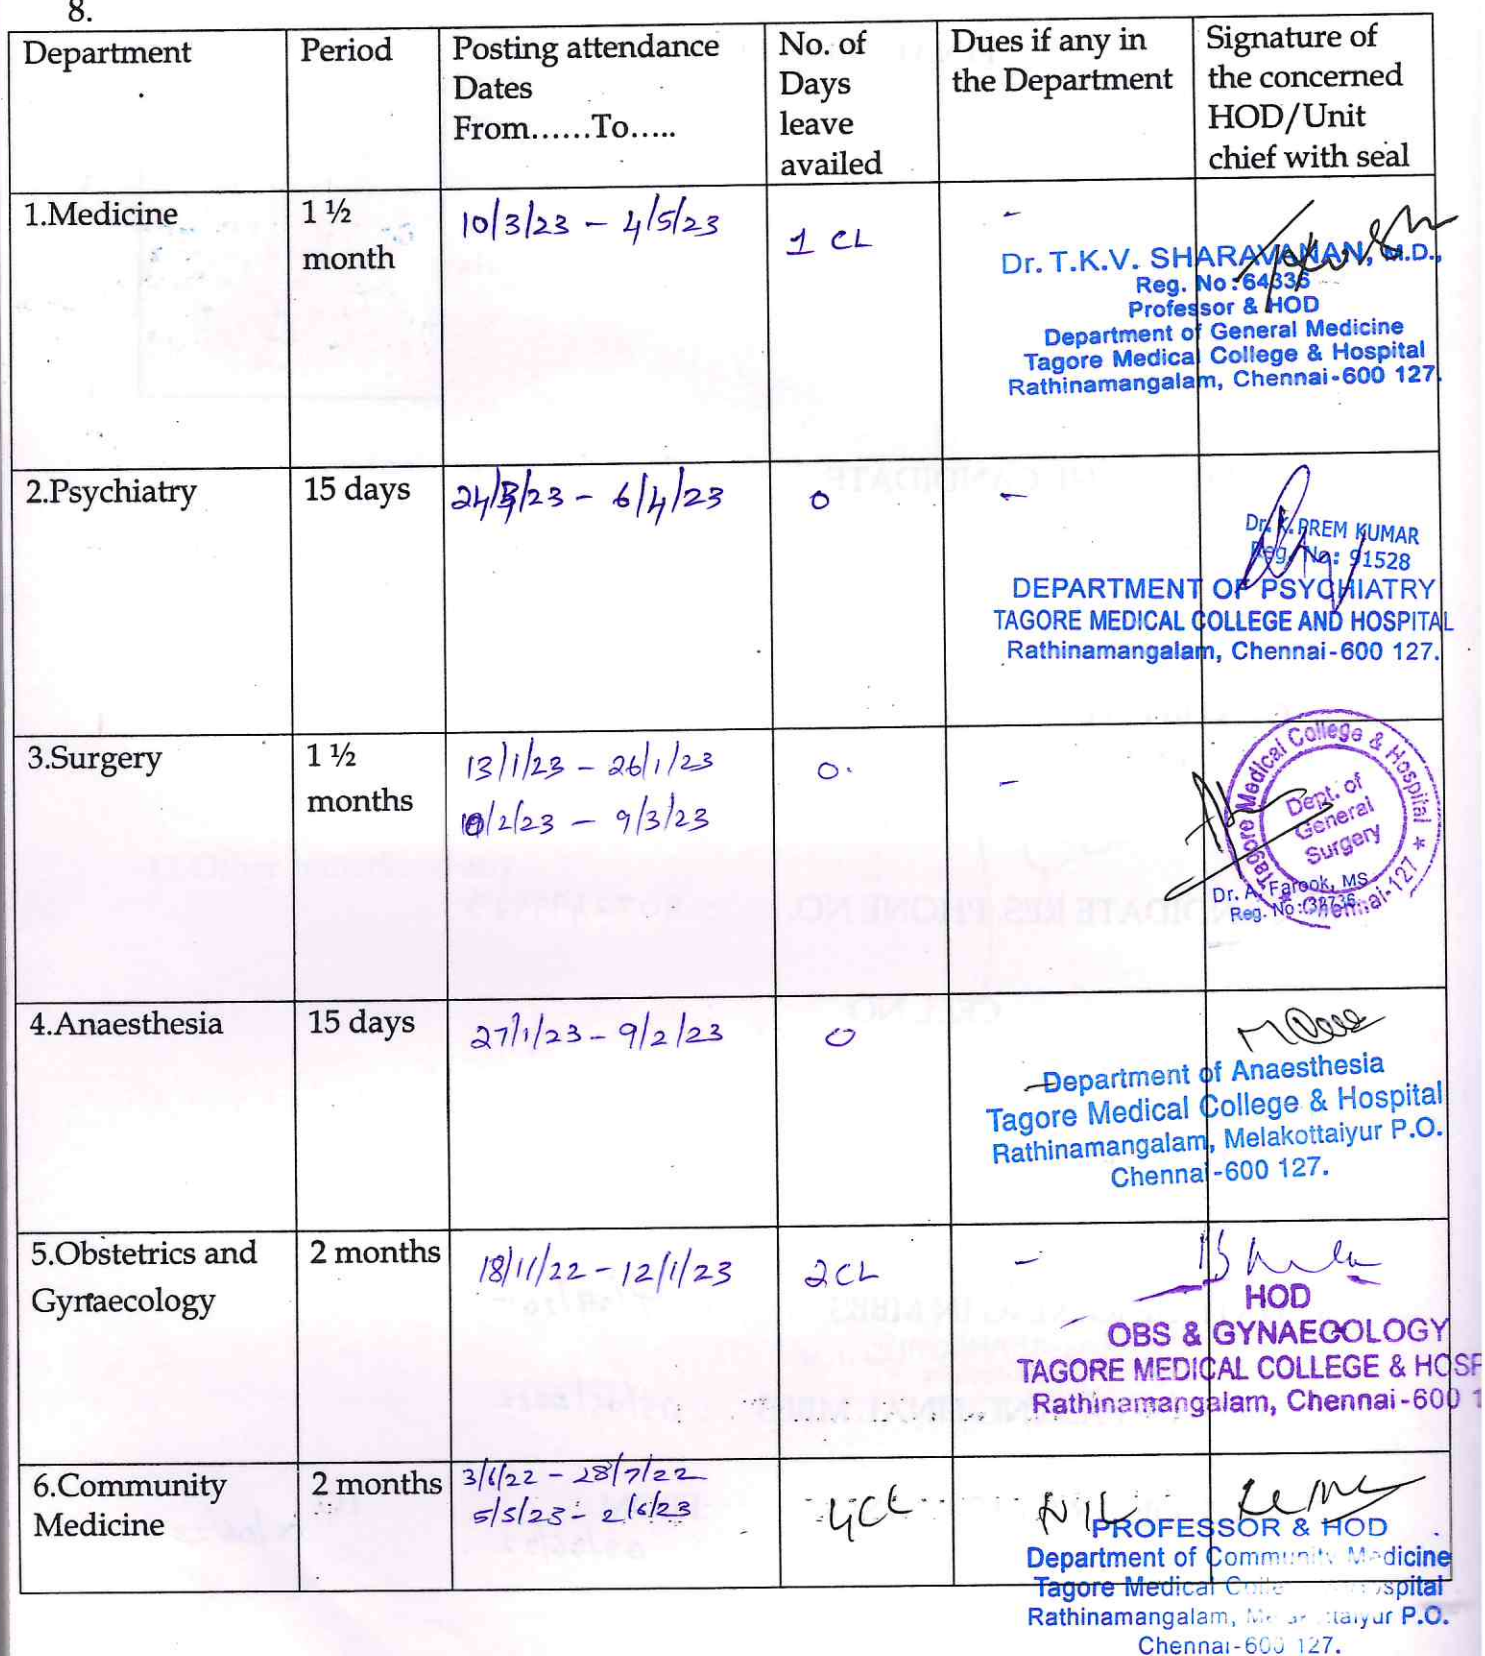 8.
Department
Period
Posting attendance
Dates
From......To.....
No. of
Days
leave
availed
Dues if any in
the Department
Signature of
the concerned
HOD/Unit
chief with seal
1.Medicine
1 ½
month
10/3/23 - 4/5/23
1 CL
-
Dr. T.K.V. SHARAVANAN, M.D.,
Reg. No:64336
Professor & HOD
Department of General Medicine
Tagore Medical College & Hospital
Rathinamangalam, Chennai-600 127.
2.Psychiatry
15 days
24/3/23 - 6/4/23
0
-
Dr. PREM KUMAR
Reg. No: 91528
DEPARTMENT OF PSYCHIATRY
TAGORE MEDICAL COLLEGE AND HOSPITAL
Rathinamangalam, Chennai-600 127.
3.Surgery
1 ½
months
13/1/23 - 26/1/23
10/2/23 - 9/3/23
0.
-
Tagore Medical College & Hospital * Chennai-127 *
Dept. of
General
Surgery
Dr. A. Farook, MS
Reg. No:
4.Anaesthesia
15 days
27/1/23 - 9/2/23
0
-
Department of Anaesthesia
Tagore Medical College & Hospital
Rathinamangalam, Melakottaiyur P.O.
Chennai-600 127.
5.Obstetrics and
Gynaecology
2 months
18/11/22 - 12/1/23
2CL
-
HOD
OBS & GYNAECOLOGY
TAGORE MEDICAL COLLEGE & HOSP
Rathinamangalam, Chennai-600 1
6.Community
Medicine
2 months
3/6/22 - 28/7/22
5/5/23 - 2/6/23
4CL
NIL
PROFESSOR & HOD
Department of Community Medicine
Tagore Medical
Rathinamangalam, P.O.
Chennai-600 127.